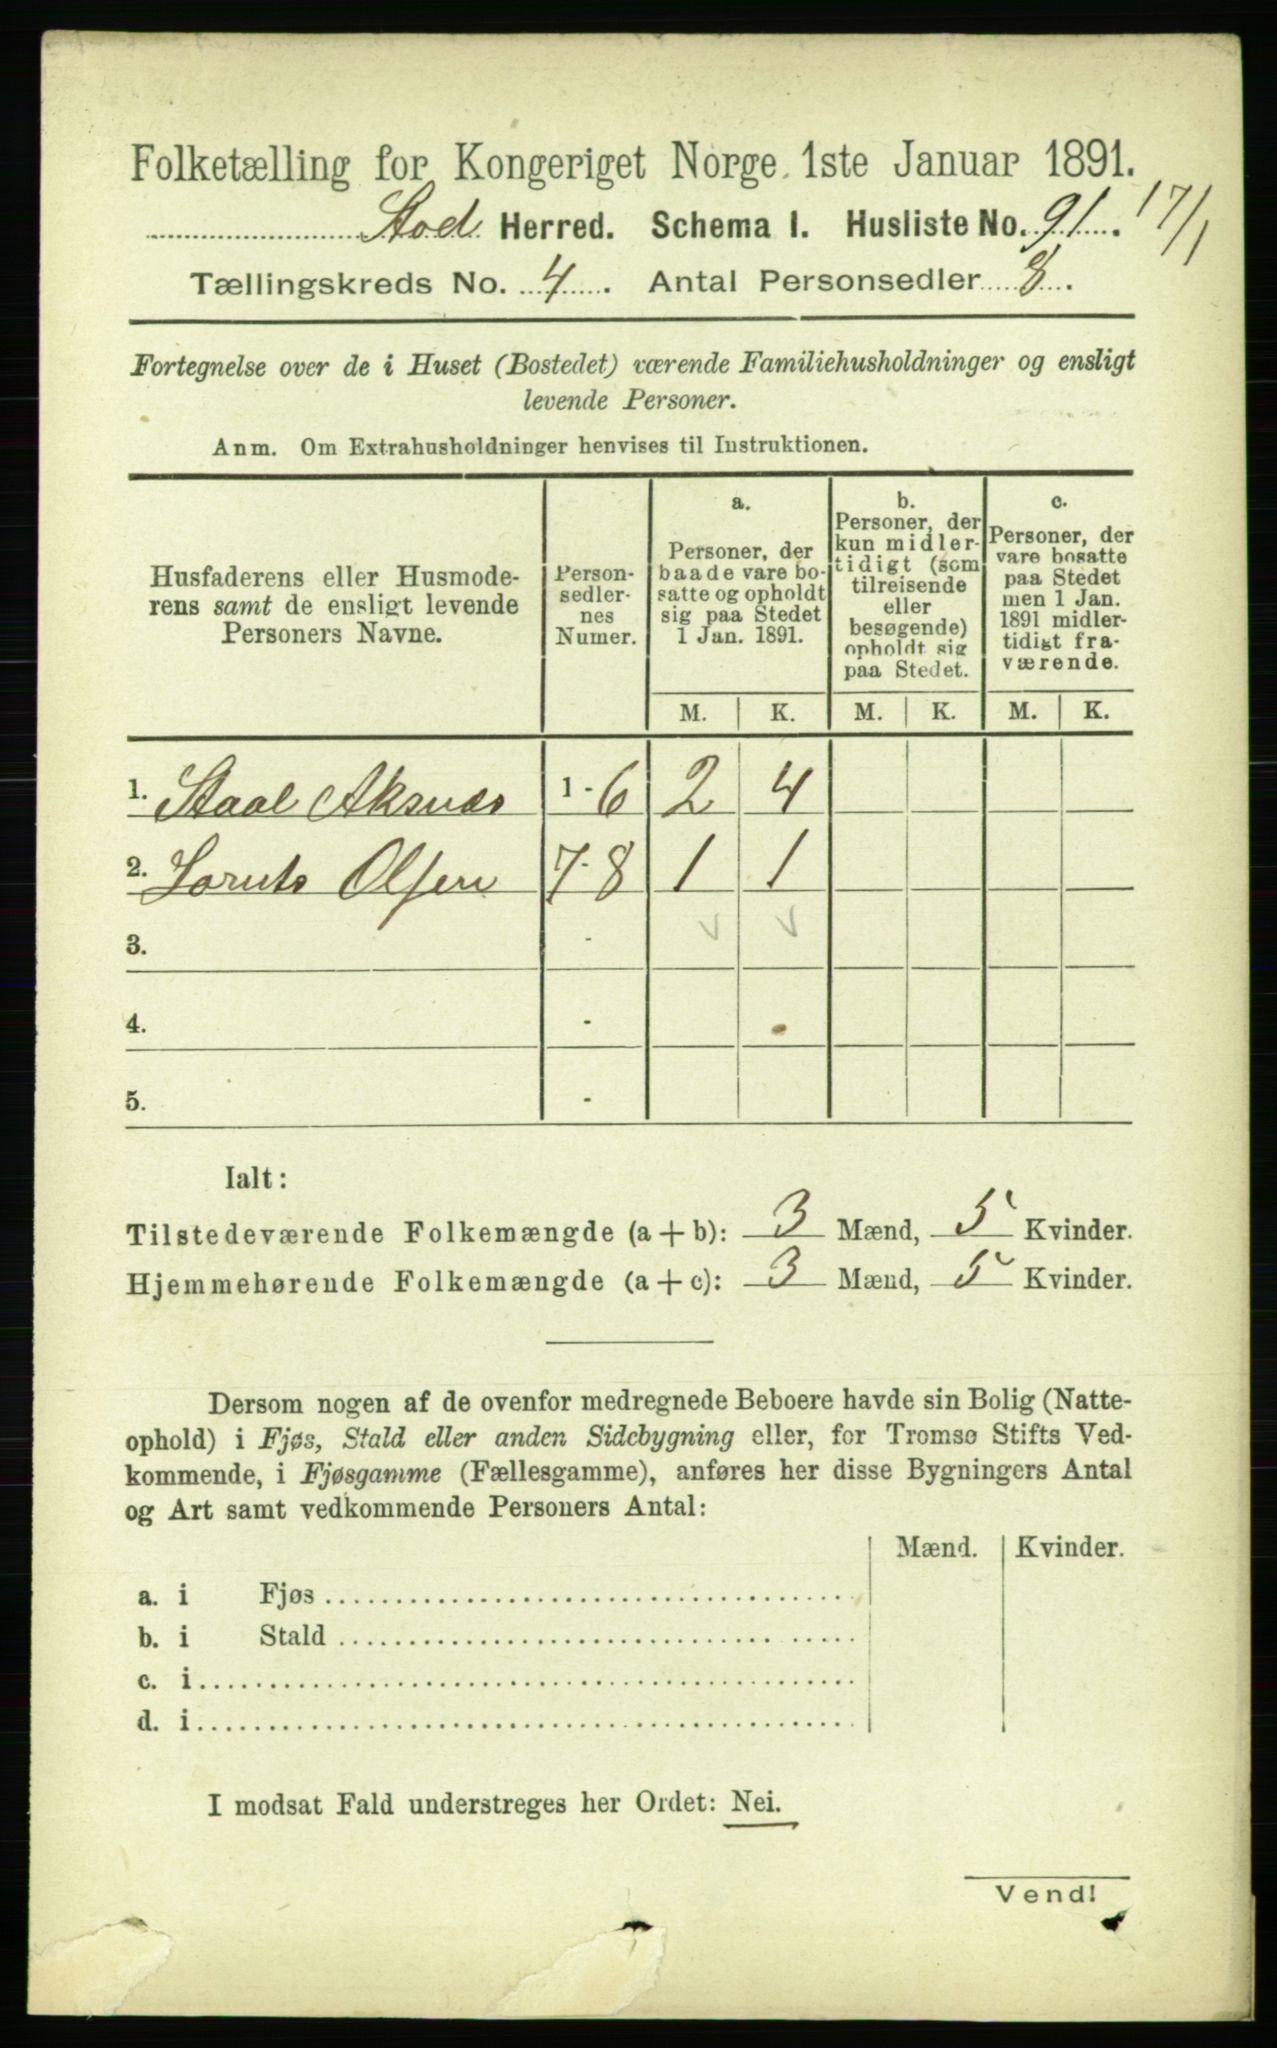 Folketælling for Kongeriget Norge 1ste Januar 1891.
Stod Herred. Schema I. Husliste No. 91. 17/1
Tællingskreds No. 4. Antal Personsedler 8.
Fortegnelse over de i Huset (Bostedet) værende Familiehusholdninger og ensligt
levende Personer.
Anm. Om Extrahusholdninger henvises til Instruktionen.
Husfaderens eller Husmode-
rens samt de ensligt levende
Personers Navne.
Person-
sedler-
nes
Numer.
a.
Personer, der
baade vare bo-
satte og opholdt
sig paa Stedet
1 Jan. 1891.
b.
Personer, der
kun midler-
tidigt (som
tilreisende
eller
besøgende)
opholdt sig
paa Stedet.
c.
Personer, der
vare bosatte
paa Stedet
men 1 Jan.
1891 midler-
tidigt fra-
værende.
M. K. M. K. M. K.
1. Staal Aksnes 1-6 2 4
2. Olsen 7-8 1 1
3. -
4. -
5. -
Ialt:
Tilstedeværende Folkemængde (a+b): 3 Mænd, 5 Kvinder.
Hjemmehørende Folkemængde (a+c): 3 Mænd, 5 Kvinder.
Dersom nogen af de ovenfor medregnede Beboere havde sin Bolig (Natte-
ophold) i Fjøs, Stald eller anden Sidebygning eller, for Tromsø Stifts Ved-
kommende, i Fjøsgamme (Fællesgamme), anføres her disse Bygningers Antal
og Art samt vedkommende Personers Antal:
Mænd. Kvinder.
a. i Fjøs
b. i Stald
c. i
d. i
I modsat Fald understreges her Ordet: Nei.
Vend!